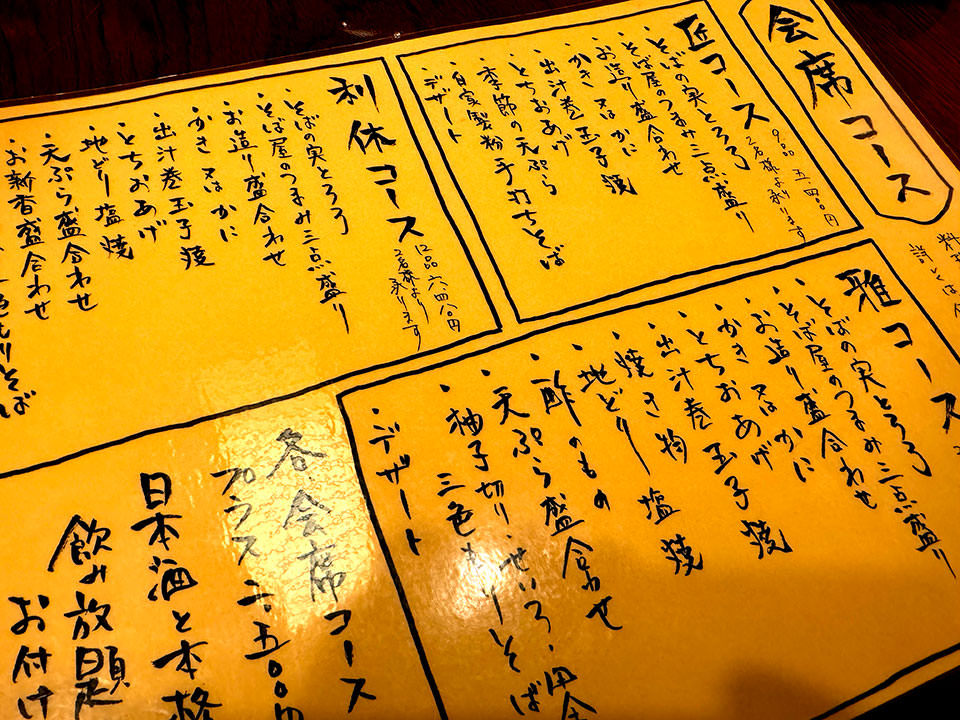 会席コース
匠コース
9品 五、四〇〇円
2名様より承ります
・そばの実とろろ
・そば屋のつまみ三点盛り
・お造り盛合わせ
・かき又はかに
・出汁巻玉子焼
・とちおあげ
・季節の天ぷら
・自家製粉手打ちそば
・デザート
利休コース
12品 六、四八〇円
2名様より承ります
・そばの実とろろ
・そば屋のつまみ三点盛り
・お造り盛合わせ
・かき又はかに
・出汁巻玉子焼
・とちおあげ
・地どり塩焼
・天ぷら盛合わせ
・お新香盛合わせ
色もりそば
雅コース
・そばの実とろろ
・そば屋のつまみ三点盛り
・お造り盛合わせ
・かき又はかに
・とちおあげ
・出汁巻玉子焼
・焼き物 塩焼
・地どり
・酢のもの
・天ぷら盛合わせ
・柚子切り・せいろ・田舎
・三色もりそば
・デザート
各会席コース
プラス二、五〇〇
日本酒と本格
飲み放題
お付け